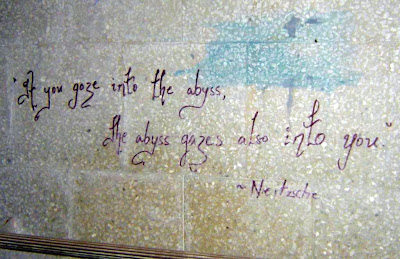 "If you gaze into the abyss,
the abyss gazes also into you."
~ Neitzsche